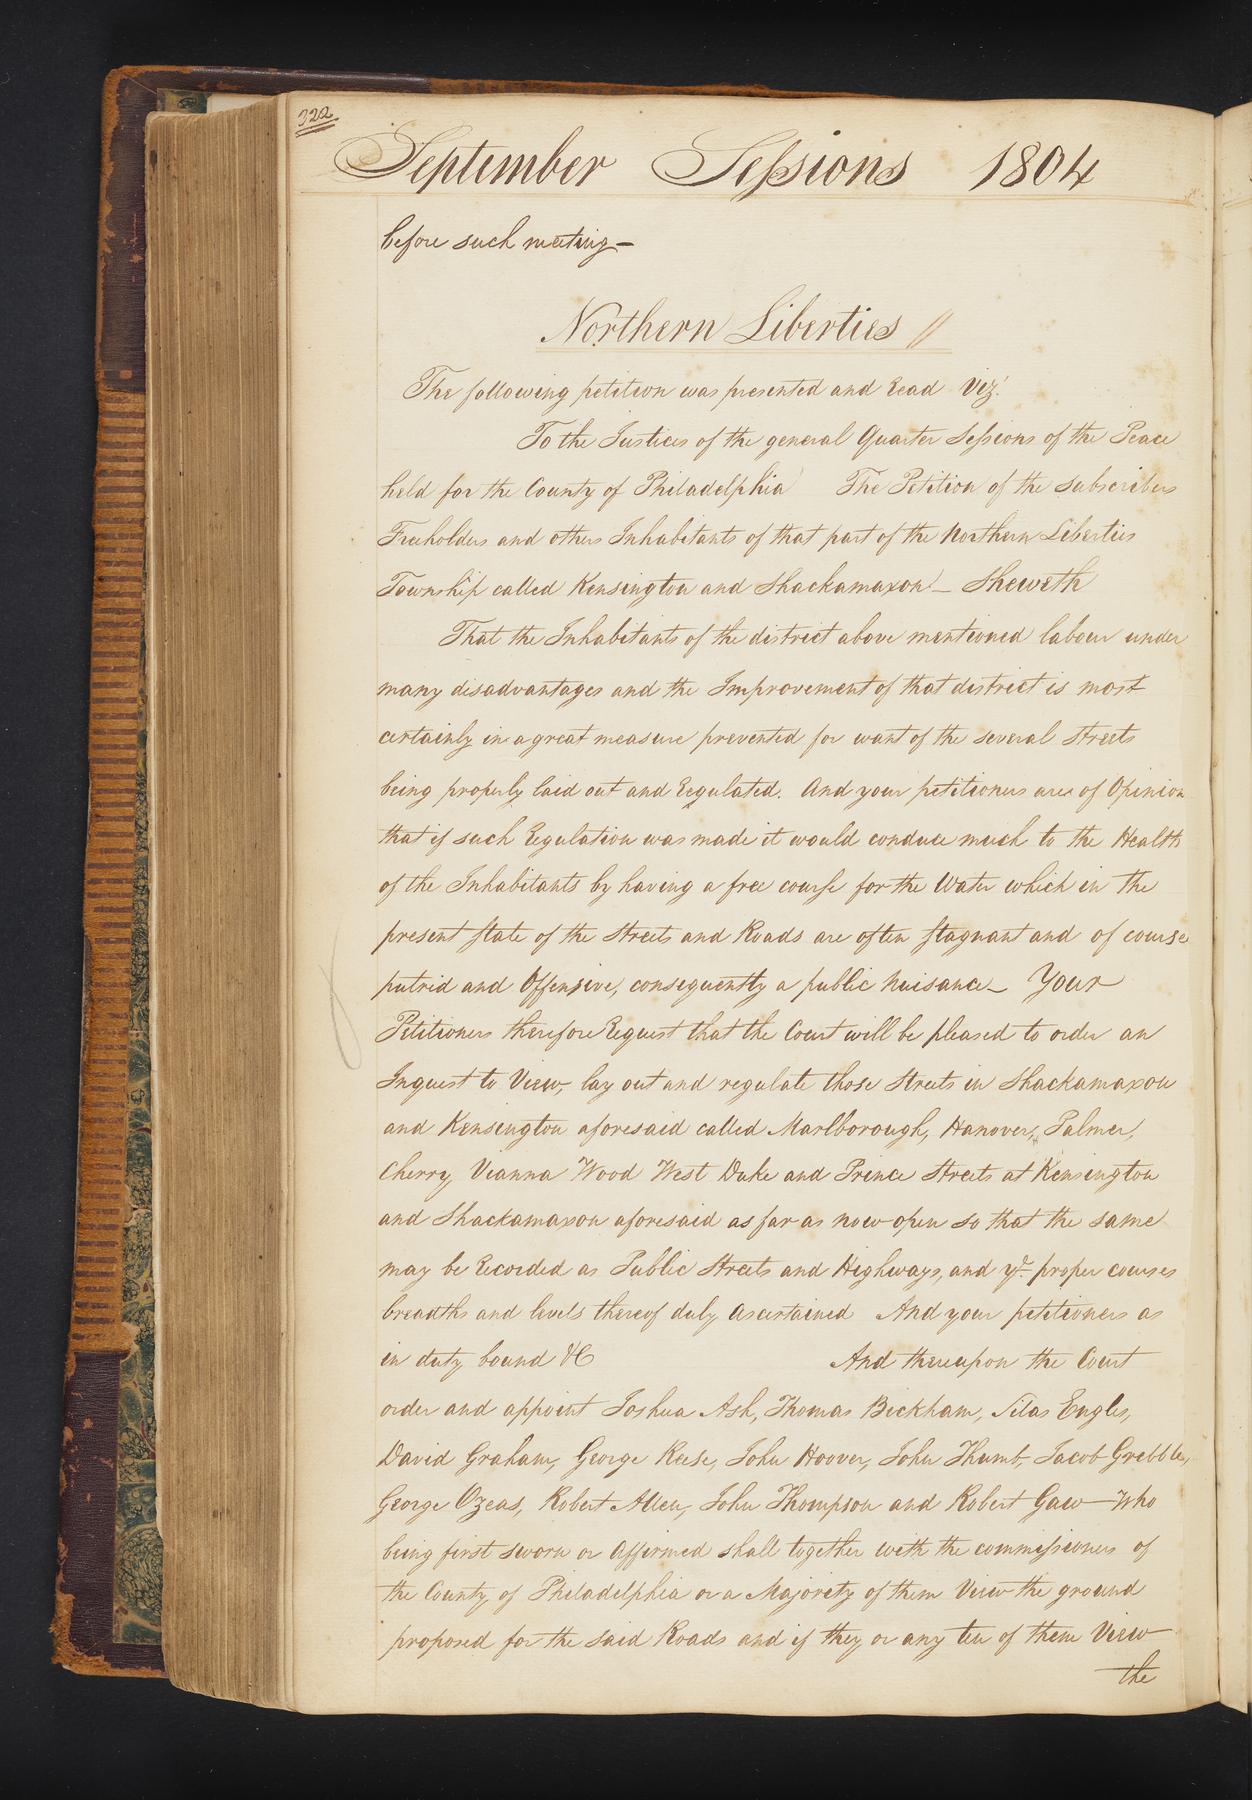 322
September Sessions 1804
before such meeting—
Northern Liberties //
The following petition was presented and Read Viz.t
To the Justices of the general Quarter Sessions of the Peace
held for the County of Philadelphia The Petition of the subscribers
Freeholders and others Inhabitants of that part of the Northern Liberties
Township called Kensington and Shackamaxon — Sheweth
That the Inhabitants of the district above mentioned labour under
many disadvantages and the Improvement of that district is most
certainly in a great measure prevented for want of the several Streets
being properly laid out and Regulated. And your petitioners are of Opinion
that if such Regulation was made it would conduce much to the Health
of the Inhabitants by having a free course for the Water which in the
present state of the Streets and Roads are often stagnant and of course
putrid and Offensive, consequently a public nuisance— Your
Petitioners therefore Request that the Court will be pleased to order an
Inquest to View, lay out and regulate those Streets in Shackamaxon
and Kensington aforesaid called Marlborough, Hanover, Palmer,
Cherry, Vianna Wood West Duke and Prince Streets at Kensington
and Shackamaxon aforesaid as far as now open so that the same
may be Recorded as Public Streets and Highways, and ye proper courses
breadths and levels thereof duly ascertained And your petitioners as
in duty bound &C And thereupon the Court
order and appoint Joshua Ash, Thomas Bickham, Silas Engles,
David Graham, George Reese, John Hoover, John Thumb, Jacob Grebble,
George Ozeas, Robert Allen, John Thompson and Robert Gaw—Who
being first sworn or Affirmed shall together with the commissioners of
the County of Philadelphia or a Majority of them View the ground
proposed for the said Roads and if they or any ten of them View
the